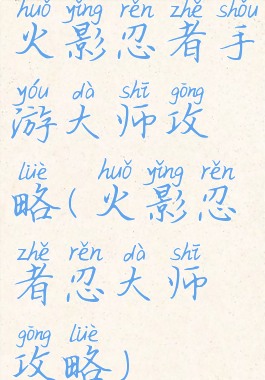 huǒ yǐng rěn zhě shǒu
火影忍者手
yóu dà shī gōng
游大师攻
lüè huǒ yǐng rěn
略(火影忍
zhě rěn dà shī
者忍大师
gōng lüè
攻略)